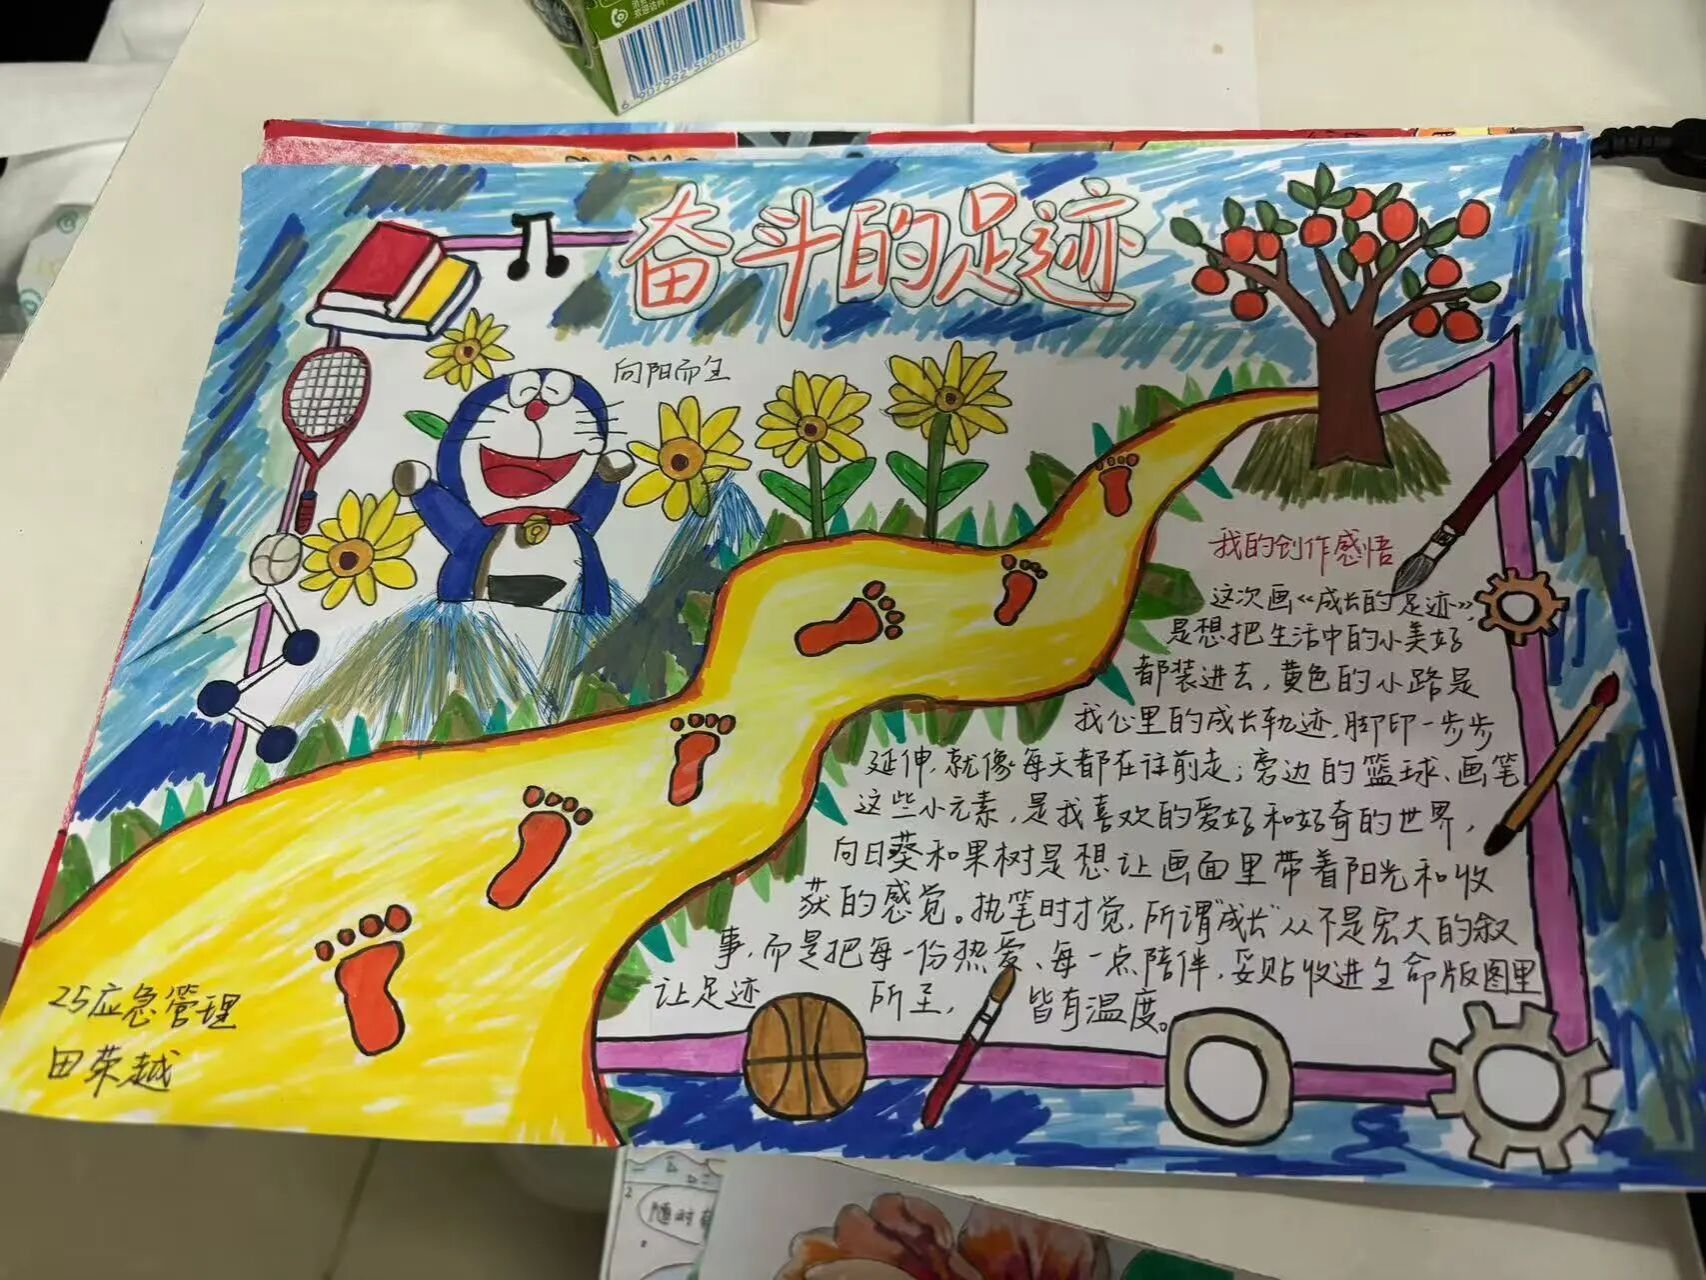 6 907992 500010
奋斗的足迹
向阳而生
我的创作感悟
这次画《成长的足迹》,
是想把生活中的小美好
都装进去,黄色的小路是
我心里的成长轨迹,脚印一步步
延伸,就像每天都在往前走;旁边的篮球、画笔
这些小元素,是我喜欢的爱好和好奇的世界,
向日葵和果树是想让画面里带着阳光和收
获的感觉。执笔时才觉,所谓"成长"从不是宏大的叙
事,而是把每一份热爱、每一点陪伴,妥贴收进生命版图里
让足迹 所至, 皆有温度。
25应急管理
田荣越
随时